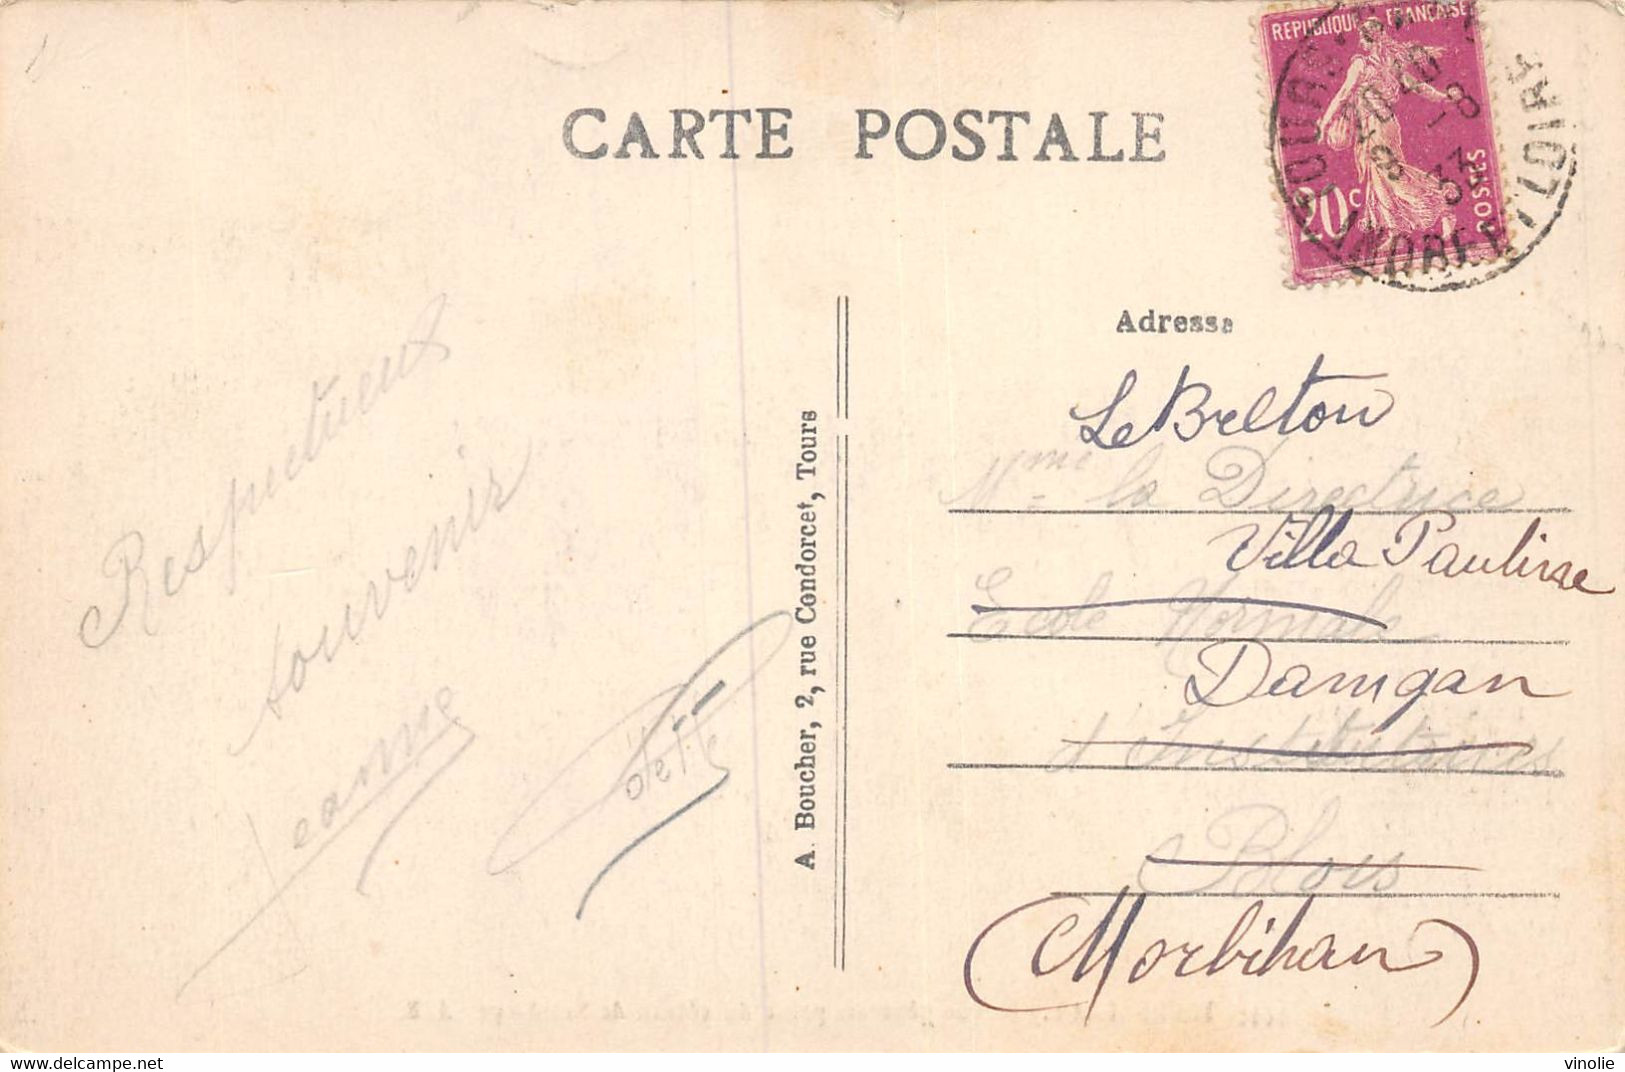 CARTE POSTALE
REPUBLIQUE FRANÇAISE
20c
POSTES
20 40
8 - 8
33
INDRE ET LOIRE
Adresse
Respectueux
souvenir
Jeanne
Odette
A. Boucher, 2, rue Condorcet, Tours
Le Bretton
Mme la Directrice
Villa Pauline
Ecole Normale
Damgan
d'Institutrices
Blois
(Morbihan)
vinolie